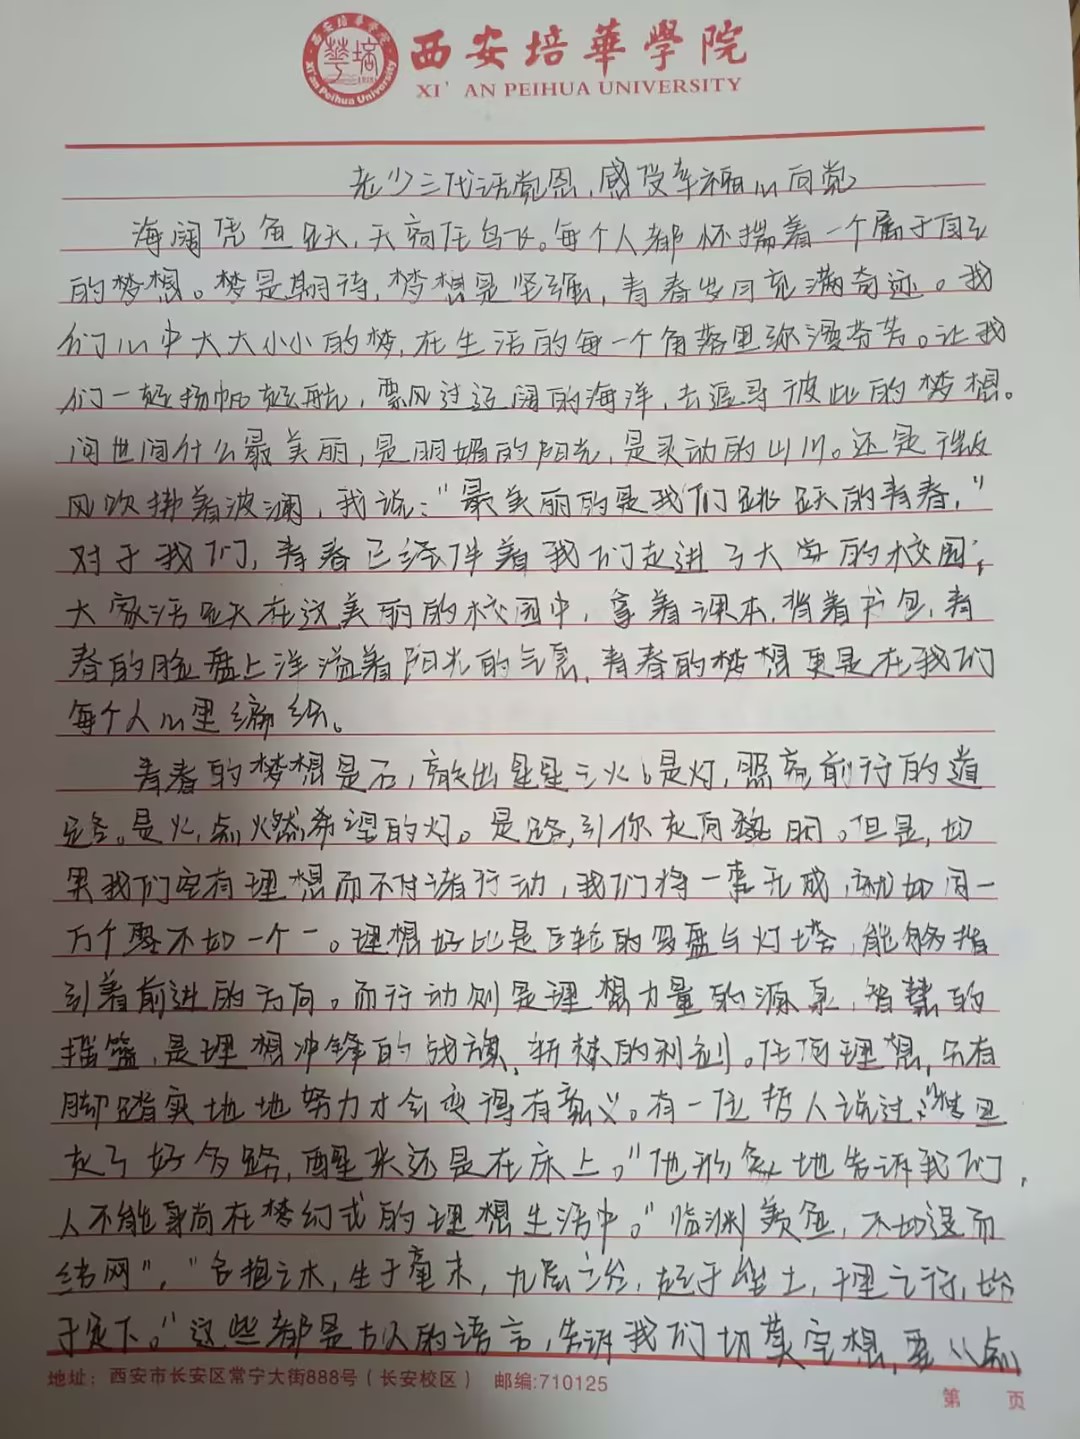 西安培華學院
XI'AN PEIHUA UNIVERSITY
老少三代话党恩,感受幸福心向党
海阔凭鱼跃,天高任鸟飞。每个人都怀揣着一个属于自己
的梦想。梦是期待,梦想是坚强,青春岁月充满奇迹。我
们心中大大小小的梦,在生活的每一个角落里弥漫芬芳。让我
们一起扬帆起航,飘过辽阔的海洋,去追寻彼此的梦想。
问世间什么最美丽,是明媚的阳光,是灵动的山川。还是
风吹拂着波澜,我说:"最美丽的是我们跳跃的青春,"
对于我们,青春已经伴着我们走进了大学的校园,
大家活跃在这美丽的校园中,拿着课本,背着书包,青
春的脸盘上洋溢着阳光的气息,青春的梦想更是在我们
每个人心里编织。
青春的梦想是石,敲出星星之火。是灯,照亮前行的道
路。是火,点燃希望的灯。是路,引你走向黎明。但是,如
果我们空有理想而不付诸行动,我们将一事无成,就如同一
万个零不如一个一。理想好比是巨轮的罗盘与灯塔,能够指
引着前进的方向。而行动则是理想力量的源泉,智慧的
摇篮,是理想冲锋的战旗,斩棘的利剑。任何理想,只有
脚踏实地地努力才会变得有意义。有一位哲人说过:"梦里
走了好多路,醒来还是在床上。"他形象地告诉我们,
人不能躺在梦幻式的理想生活中。"临渊羡鱼,不如退而
结网","合抱之木,生于毫末,九层之台,起于垒土,千里之行,始
于足下。"这些都是古人的语言,告诉我们切莫空想,要从点
地址:西安市长安区常宁大街888号(长安校区) 邮编:710125
第 页